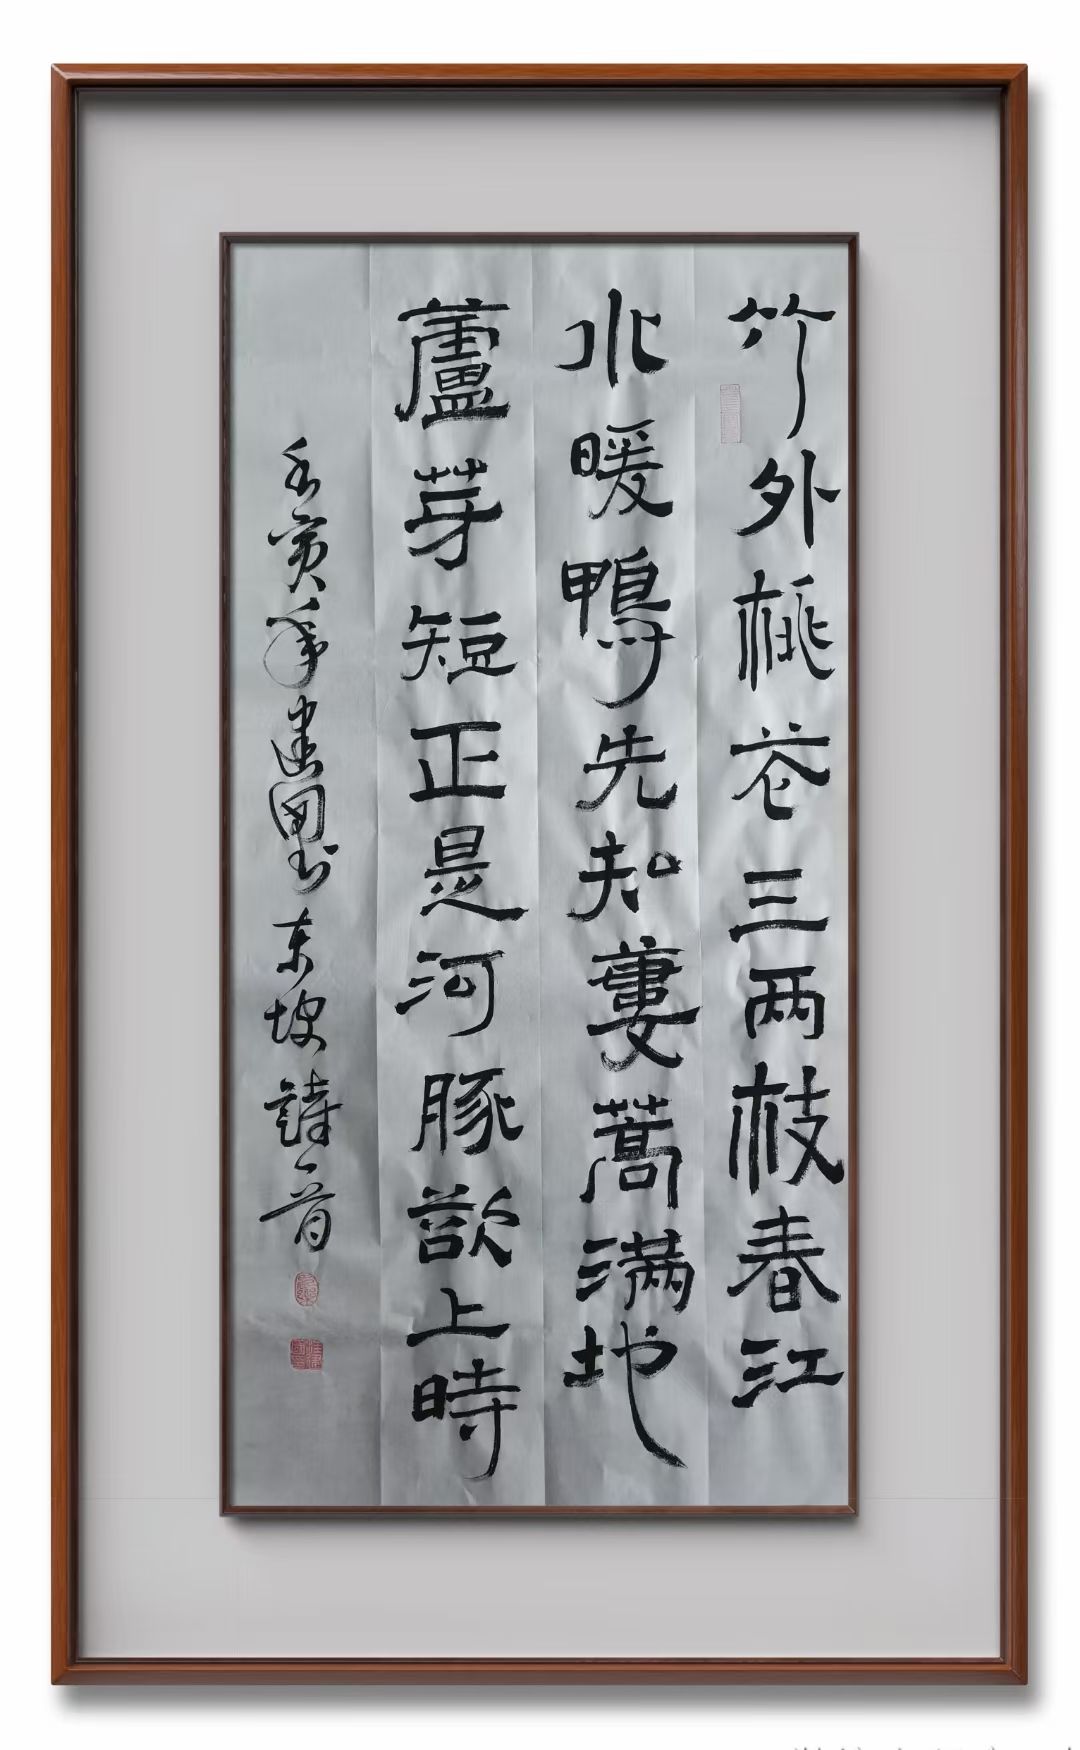 竹外桃花三两枝春江
水暖鴨先知蔞蒿满地
蘆芽短正是河豚欲上時
壬寅年建国书东坡詩一首